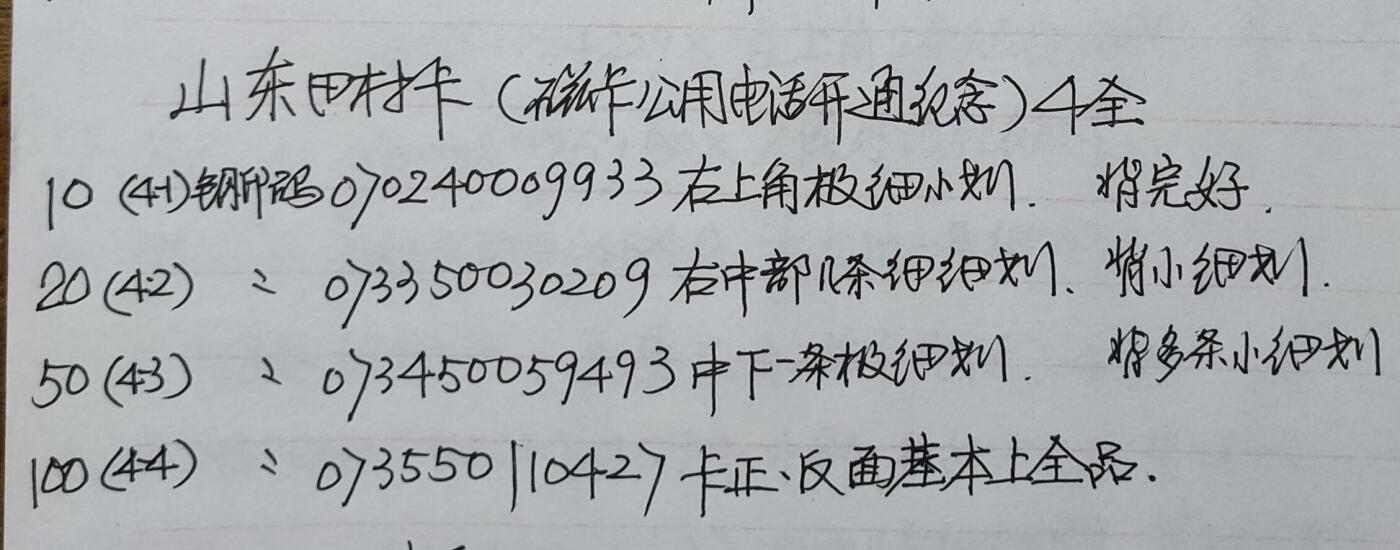 山东田村卡(磁卡公用电话开通纪念)4全
10 (4-1) 钢印码 070240009933 右上角极细小划. 背完好.
20 (4-2) 〃 073350030209 右中部几条细细划. 背小细划.
50 (4-3) 〃 073450059493 中下一条极细划. 背多条小细划
100 (4-4) 〃 073550110427 卡正、反面基本上全品.